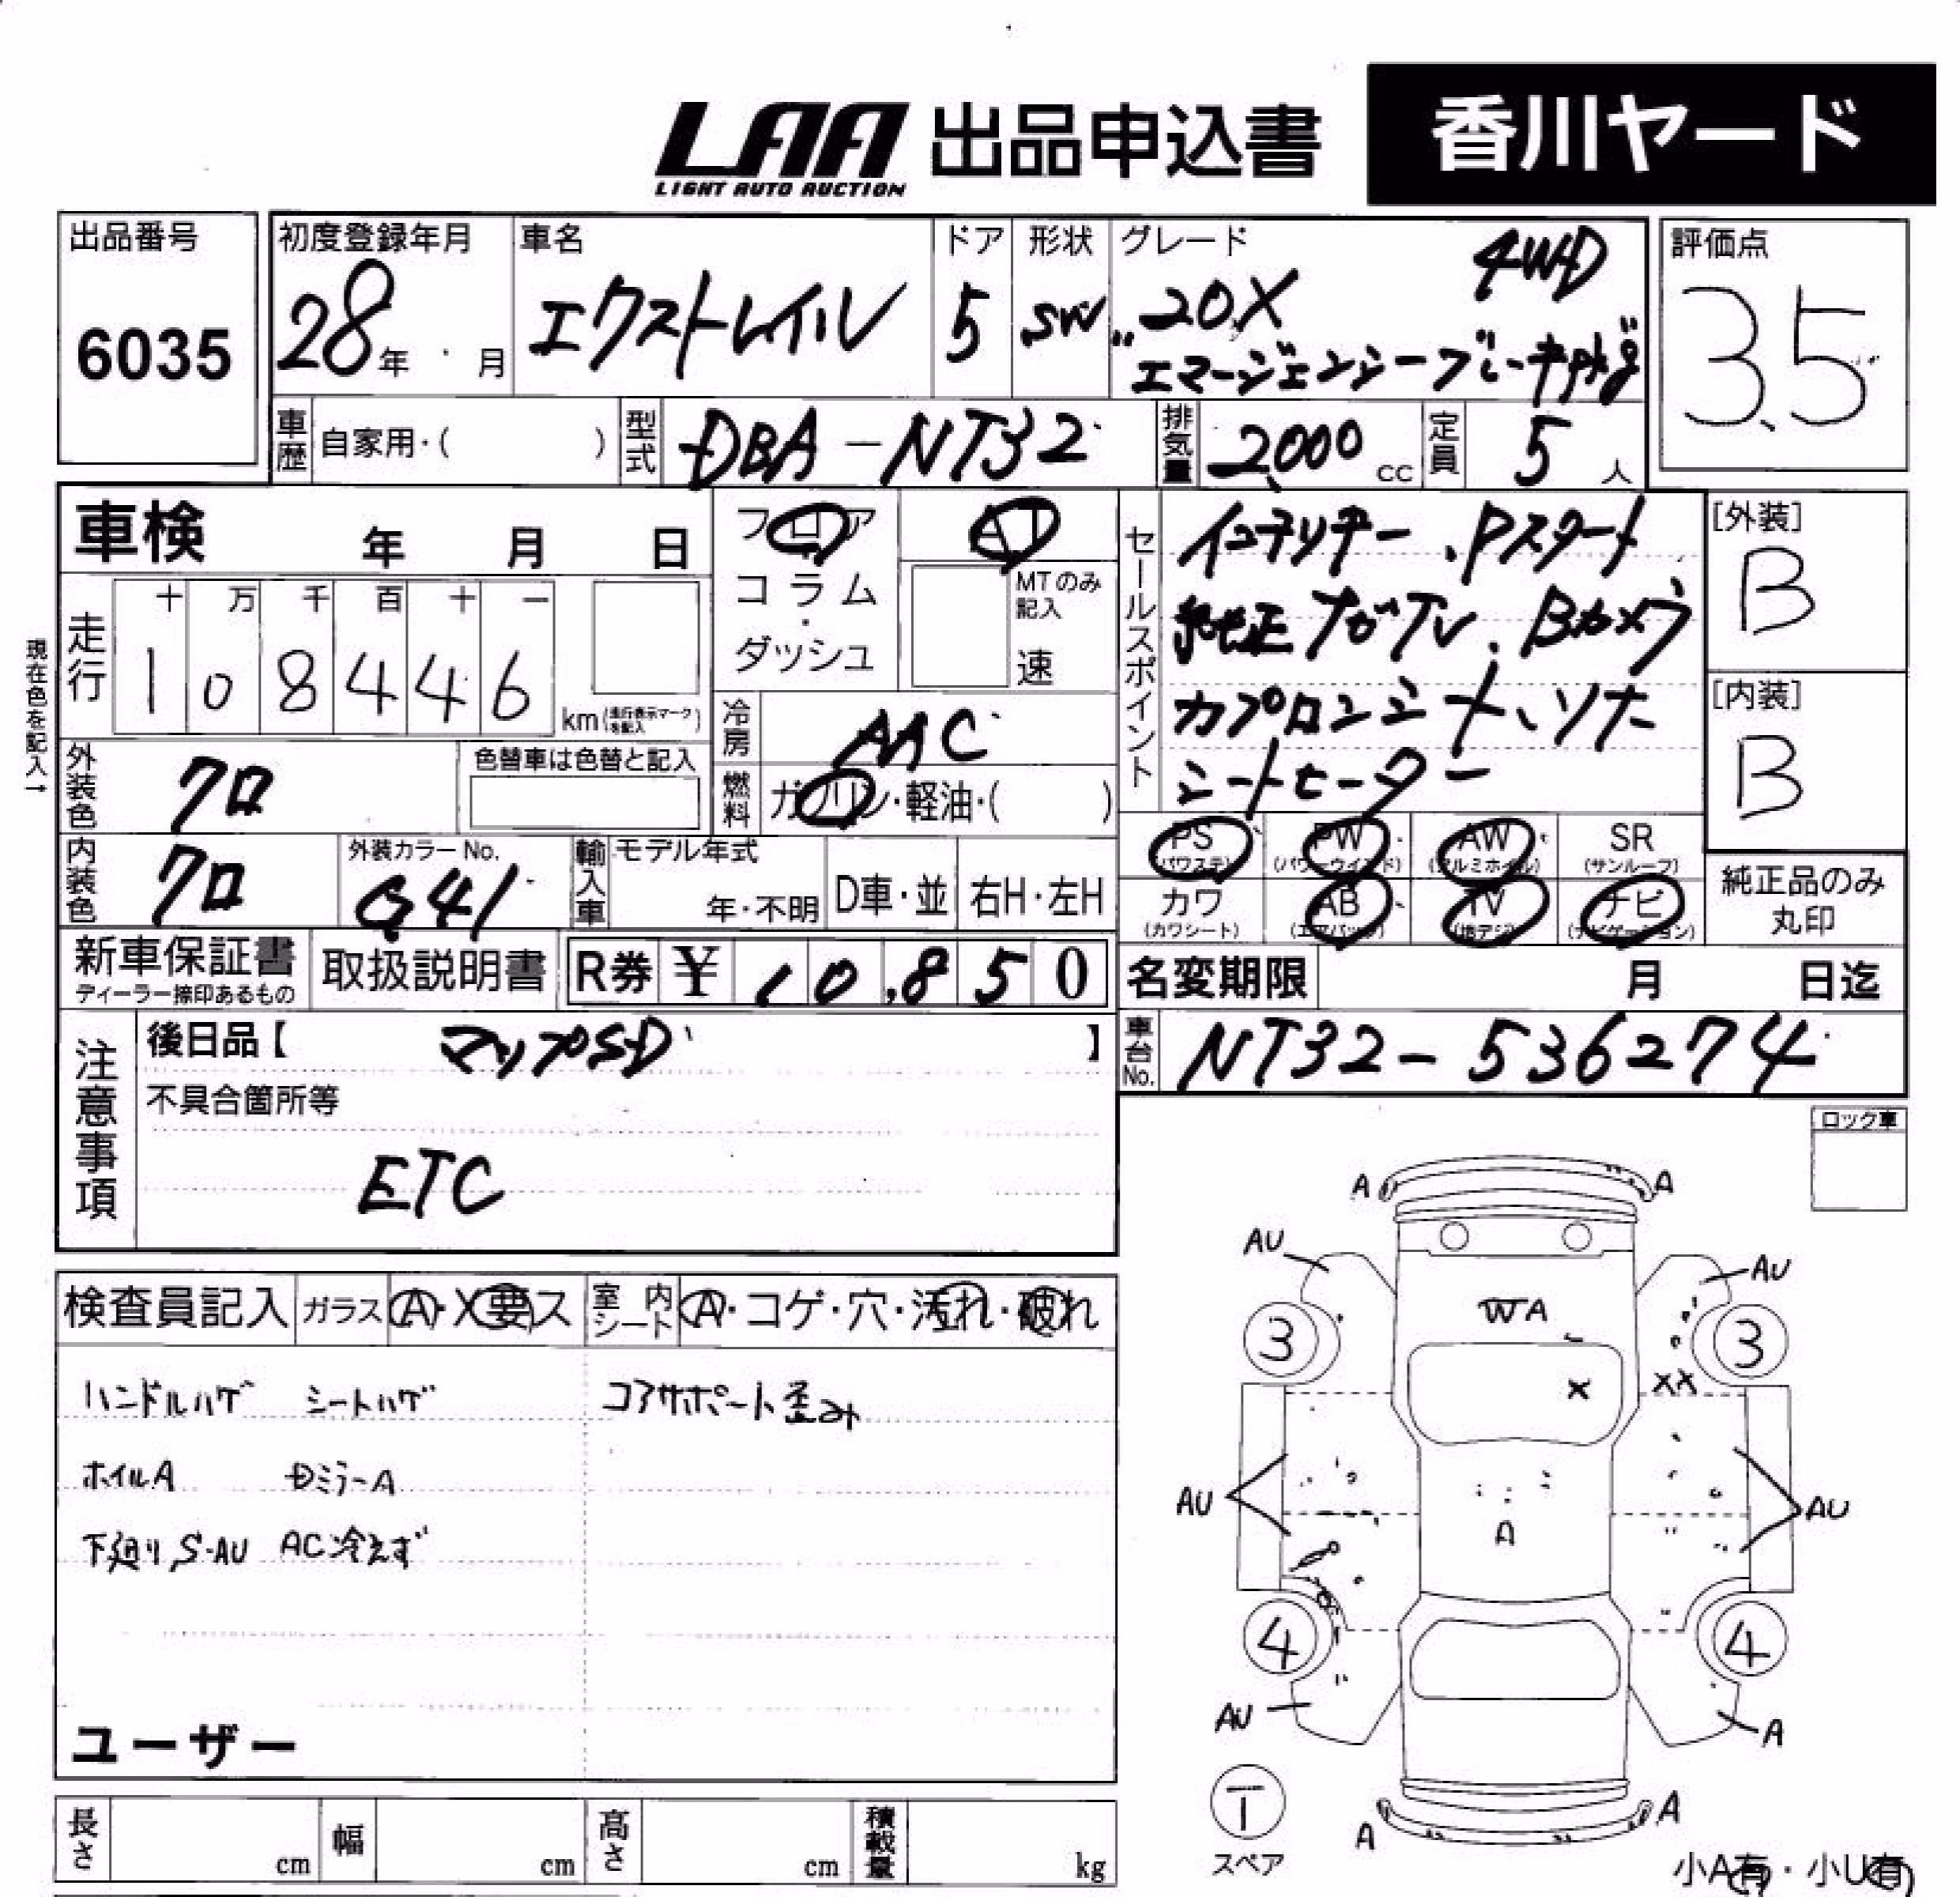 LAA 出品申込書 香川ヤード
LIGHT AUTO AUCTION
出品番号 初度登録年月 車名 ドア 形状 グレード 4WD 評価点
6035 28年 月 エクストレイル 5 SW 20X 3.5
"エマージェンシーブレーキP"
車歴 自家用・( ) 型式 DBA-NT32 排気量 2,000cc 定員 5人
車検 年 月 日 フロア AT セールスポイント インテリキー、Pスタート [外装]
コラム・ダッシュ MTのみ記入 速 純正ナビTV、Bカメラ B
現在色を記入→
走行 十 万 千 百 十 一
1 0 8 4 4 6 km(走行表示マークを記入)
冷房 AAC カプロンシート、ソナー [内装]
シートヒーター B
外装色 クロ 色替車は色替と記入 燃料 ガソリン・軽油・( )
PS (パワステ) PW (パワーウインド) AW (アルミホイル) SR (サンルーフ)
内装色 クロ 外装カラーNo. G41 輸入車 モデル年式 年・不明 D車・並 右H・左H
カワ (カワシート) AB (エアバッグ) TV (地デジ) ナビ (ナビゲーション) 純正品のみ丸印
新車保証書 ディーラー捺印あるもの 取扱説明書 R券 ¥ 10,850 名変期限 月 日迄
注意事項 後日品【 マップSD 】 車台No. NT32-536274
不具合箇所等
ETC
ロック車
検査員記入 ガラス A・X要ス 室内シート A・コゲ・穴・汚れ・破れ
ハンドルハゲ シートハゲ コアサポート歪み
ホイルA Dミラー A
下廻り S・AU AC冷えず
ユーザー
A A
AU AU
3 WA 3
X XX
AU A AU
4 4
AU A
T
スペア
A A
小A有・小U有
長さ cm 幅 cm 高さ cm 積載量 kg